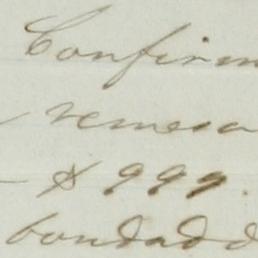 Confirm
remesa
$ 999.
bondado